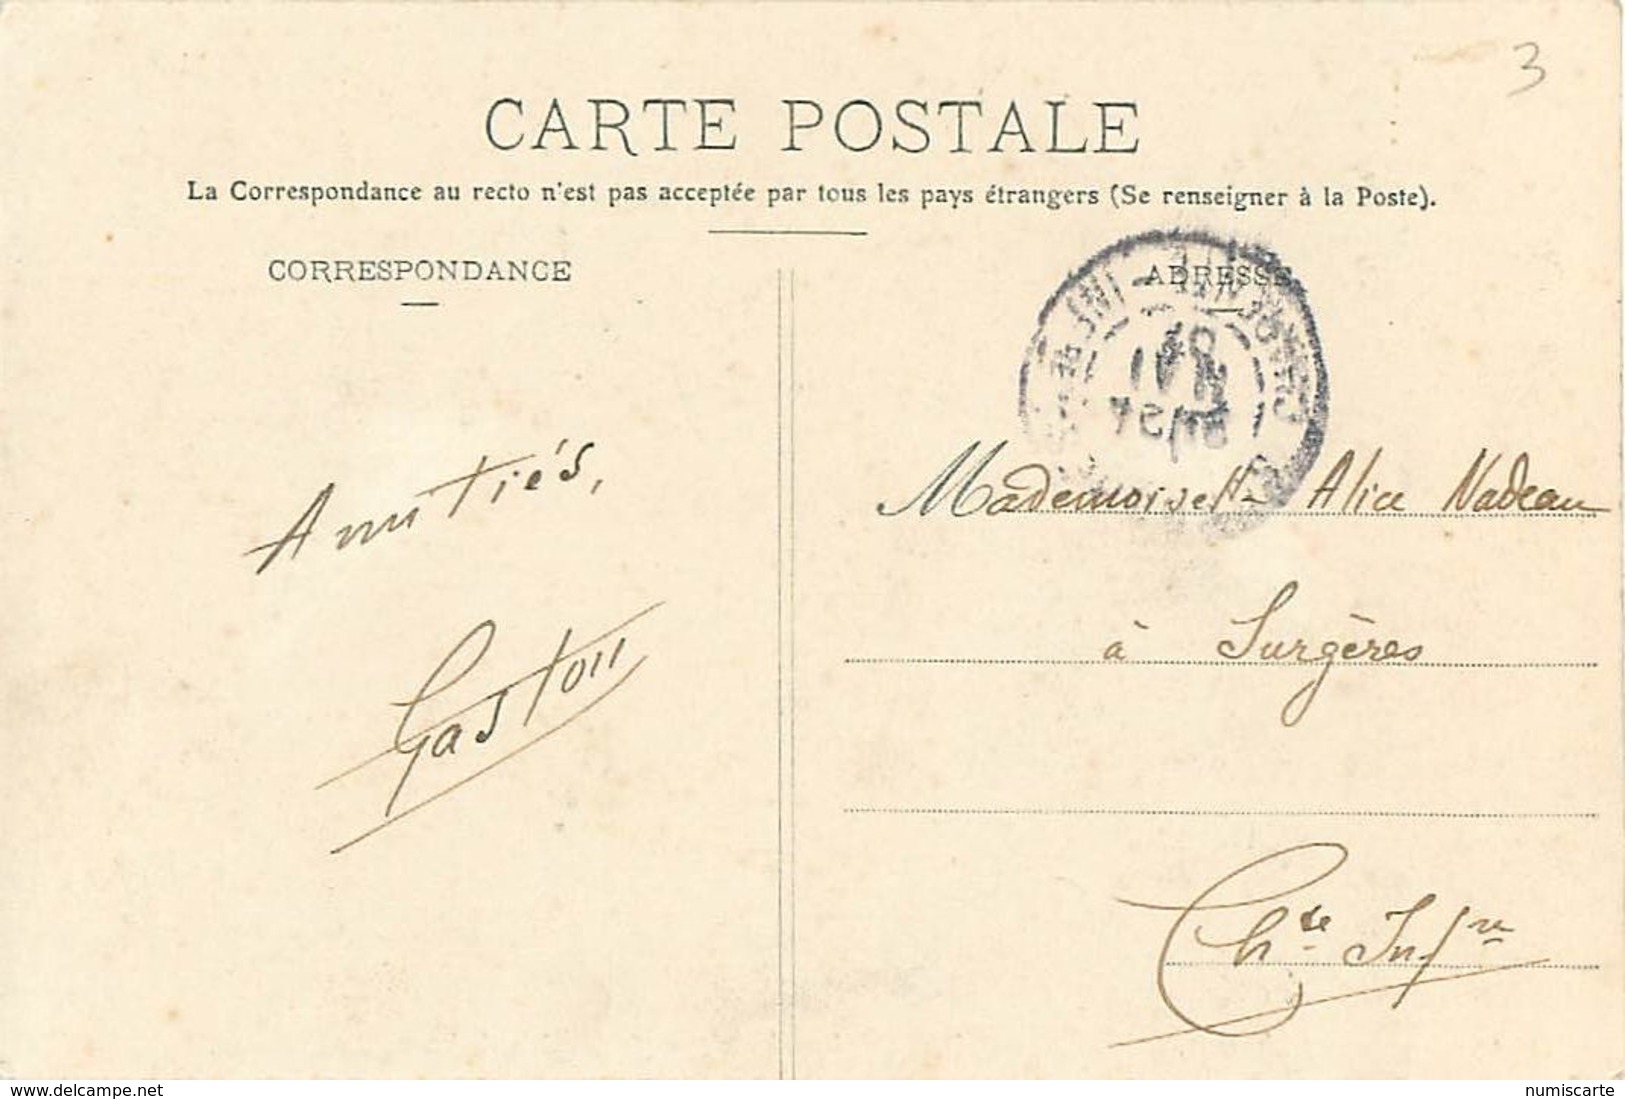 3
CARTE POSTALE
La Correspondance au recto n'est pas acceptée par tous les pays étrangers (Se renseigner à la Poste).
CORRESPONDANCE
ADRESSE
Amitiés,
Gaston
Mademoiselle Alice Nadeau
à Surgères
Chte Infre
www.delcampe.net
numiscarte